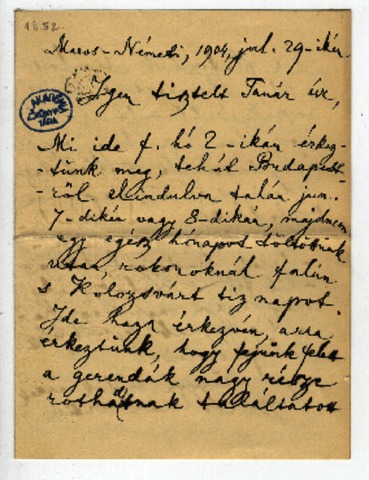 18.52.
Maros-Németi, 1904, jul. 29-ikén
Igen tisztelt Tanár úr,
AKADÉMIA KÖNYVTÁRA
Mi ide f. hó 2-ikán érkez-
tünk meg, tehát Budapest-
ről elindulva talán jun.
7-dikén vagy 8-dikán, majdnem
egy egész hónapot töltöttünk
utan, rokonoknál falun
s Kolozsvárt tiz napot.
Ide haza érkezvén, arra
érkeztünk, hogy fejünk felett
a gerendák nagy része
rothadtnak találtatott